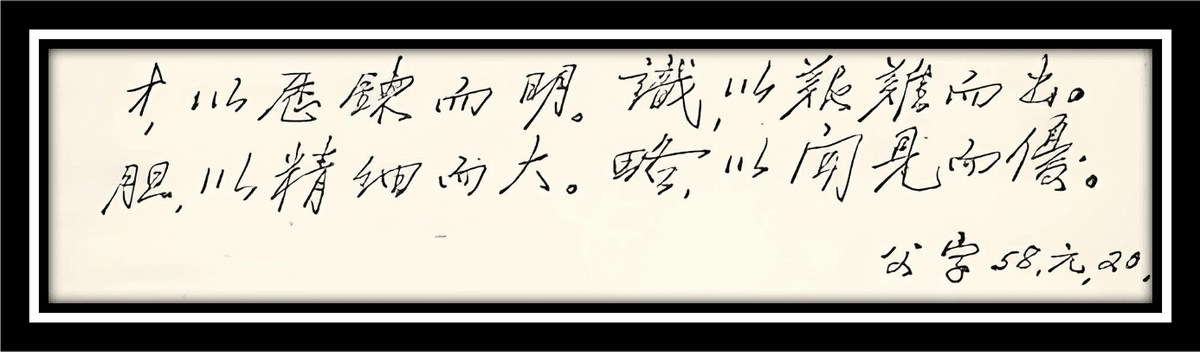 才,以歷鍊而明。識,以艱難而出。
胆,以精細而大。略,以聞見而優。
父字 58.元,20,